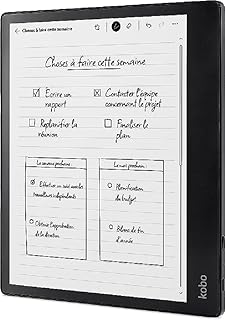 Choses à faire cette semaine
Choses à faire cette semaine
Écrire un
rapport
Contacter l'équipe
concernant le projet
Replanifier la
réunion
Finaliser le
plan
La semaine prochaine
Effectuer un suivi avec les
travailleurs indépendants
Obtenir l'approbation
de la direction
Le mois prochain
Planification
du budget
Bilans de fin
d'année
kobo